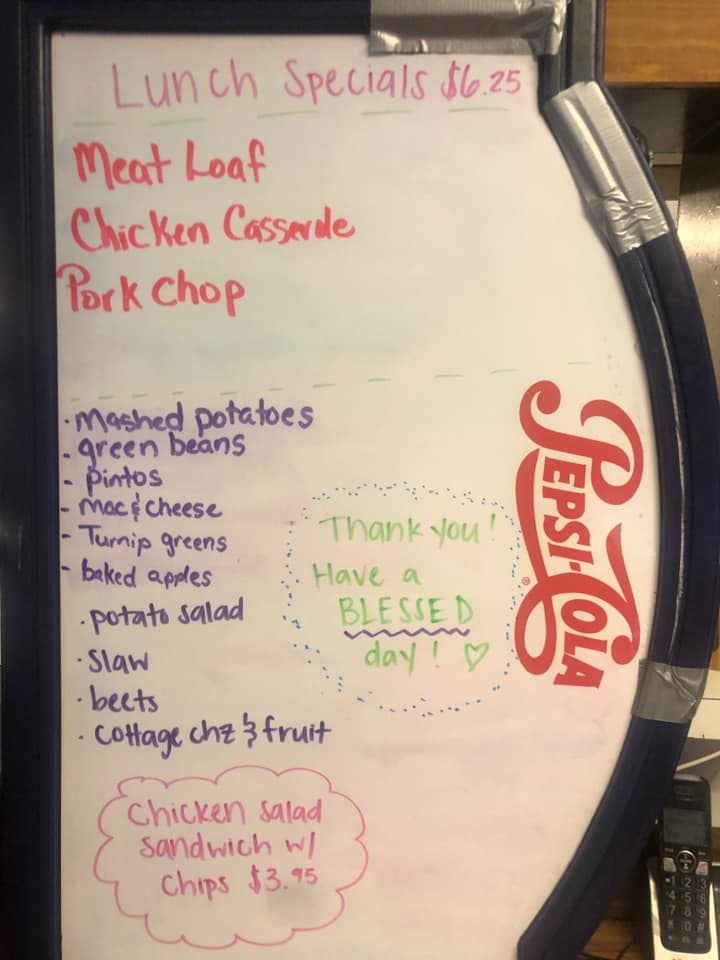 Lunch Specials $6.25
Meat Loaf
Chicken Casserole
Pork Chop
· Mashed potatoes
· green beans
- pintos
- Mac & cheese
- Turnip greens
- baked apples
· potato salad
· Slaw
· beets
· Cottage chz & fruit
Thank you!
Have a
BLESSED
day! ♡
PEPSI-COLA
®
Chicken salad
Sandwich w/
Chips $3.95